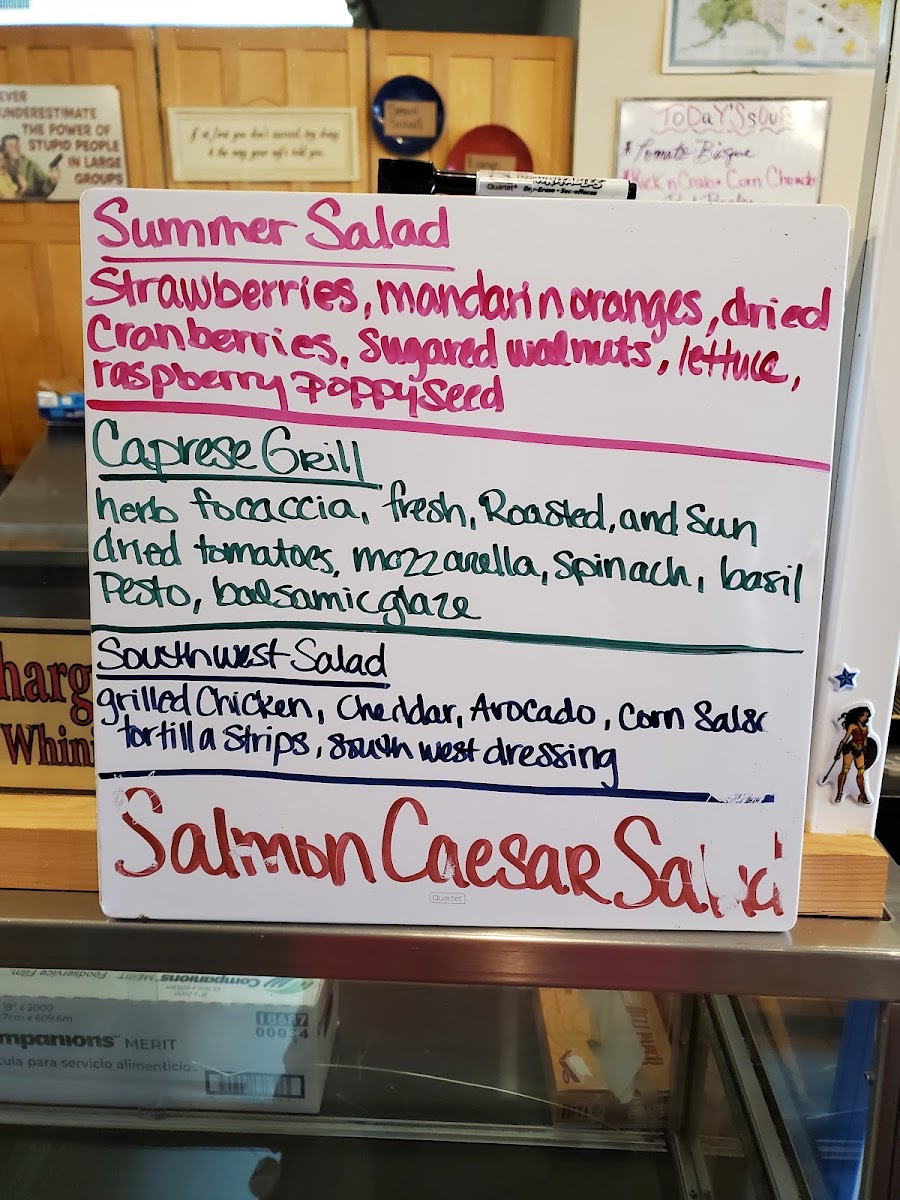 EVER
UNDERESTIMATE
THE POWER OF
STUPID PEOPLE
IN LARGE
GROUPS
If at first you don't succeed, try doing
it the way your wife told you.
ToDaY'S SOUP
Tomato Bisque
Corn Chowder
Quartet
Summer Salad
Strawberries, mandarin oranges, dried
Cranberries, Sugared walnuts, lettuce,
raspberry Poppyseed
Caprese Grill
herb focaccia, fresh, Roasted, and Sun
dried tomatoes, mozzarella, Spinach, basil
Pesto, balsamic glaze
Southwest Salad
grilled Chicken, Cheddar, Avocado, Corn Salsa
tortilla Strips, southwest dressing
Salmon Caesar Salad
Quartet
harg
Whini
Foodservice Film
MERIT
Companions
18" x 2000'
7cm x 609.6m
mpanions MERIT
cula para servicio alimenticio
18667
00034